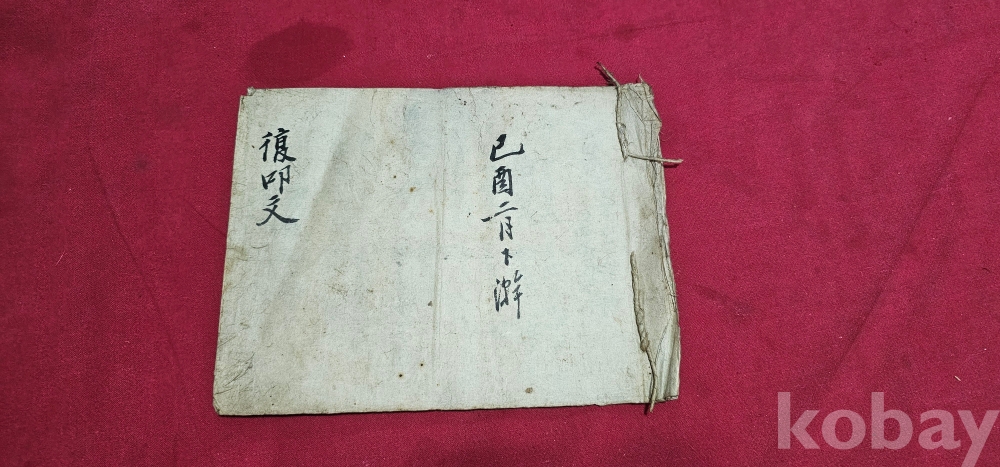 己酉二月下澣
復印文
kobay